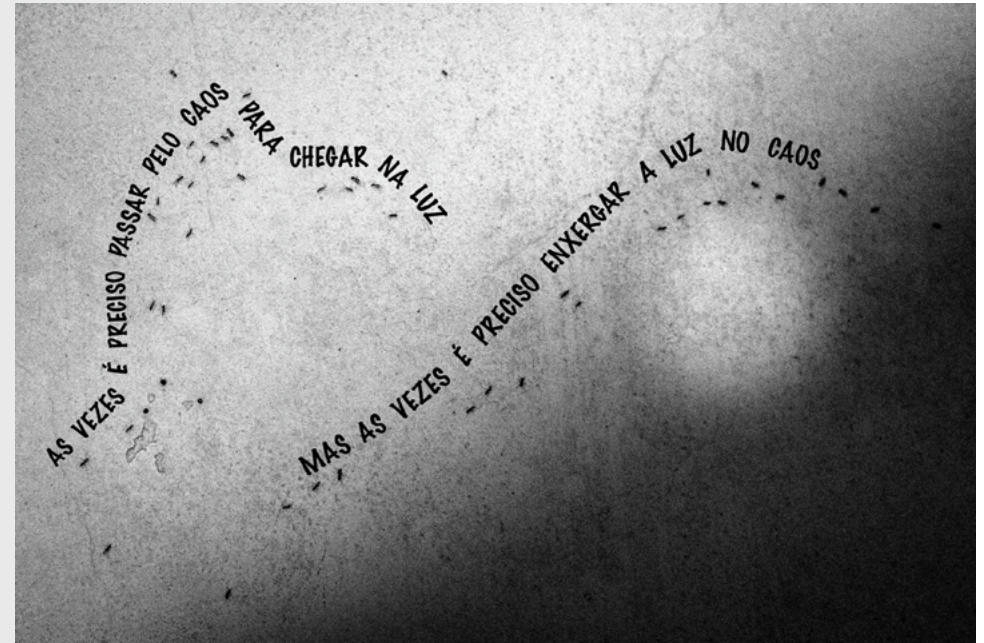 AS VEZES É PRECISO PASSAR PELO CAOS PARA CHEGAR NA LUZ
MAS AS VEZES É PRECISO ENXERGAR A LUZ NO CAOS